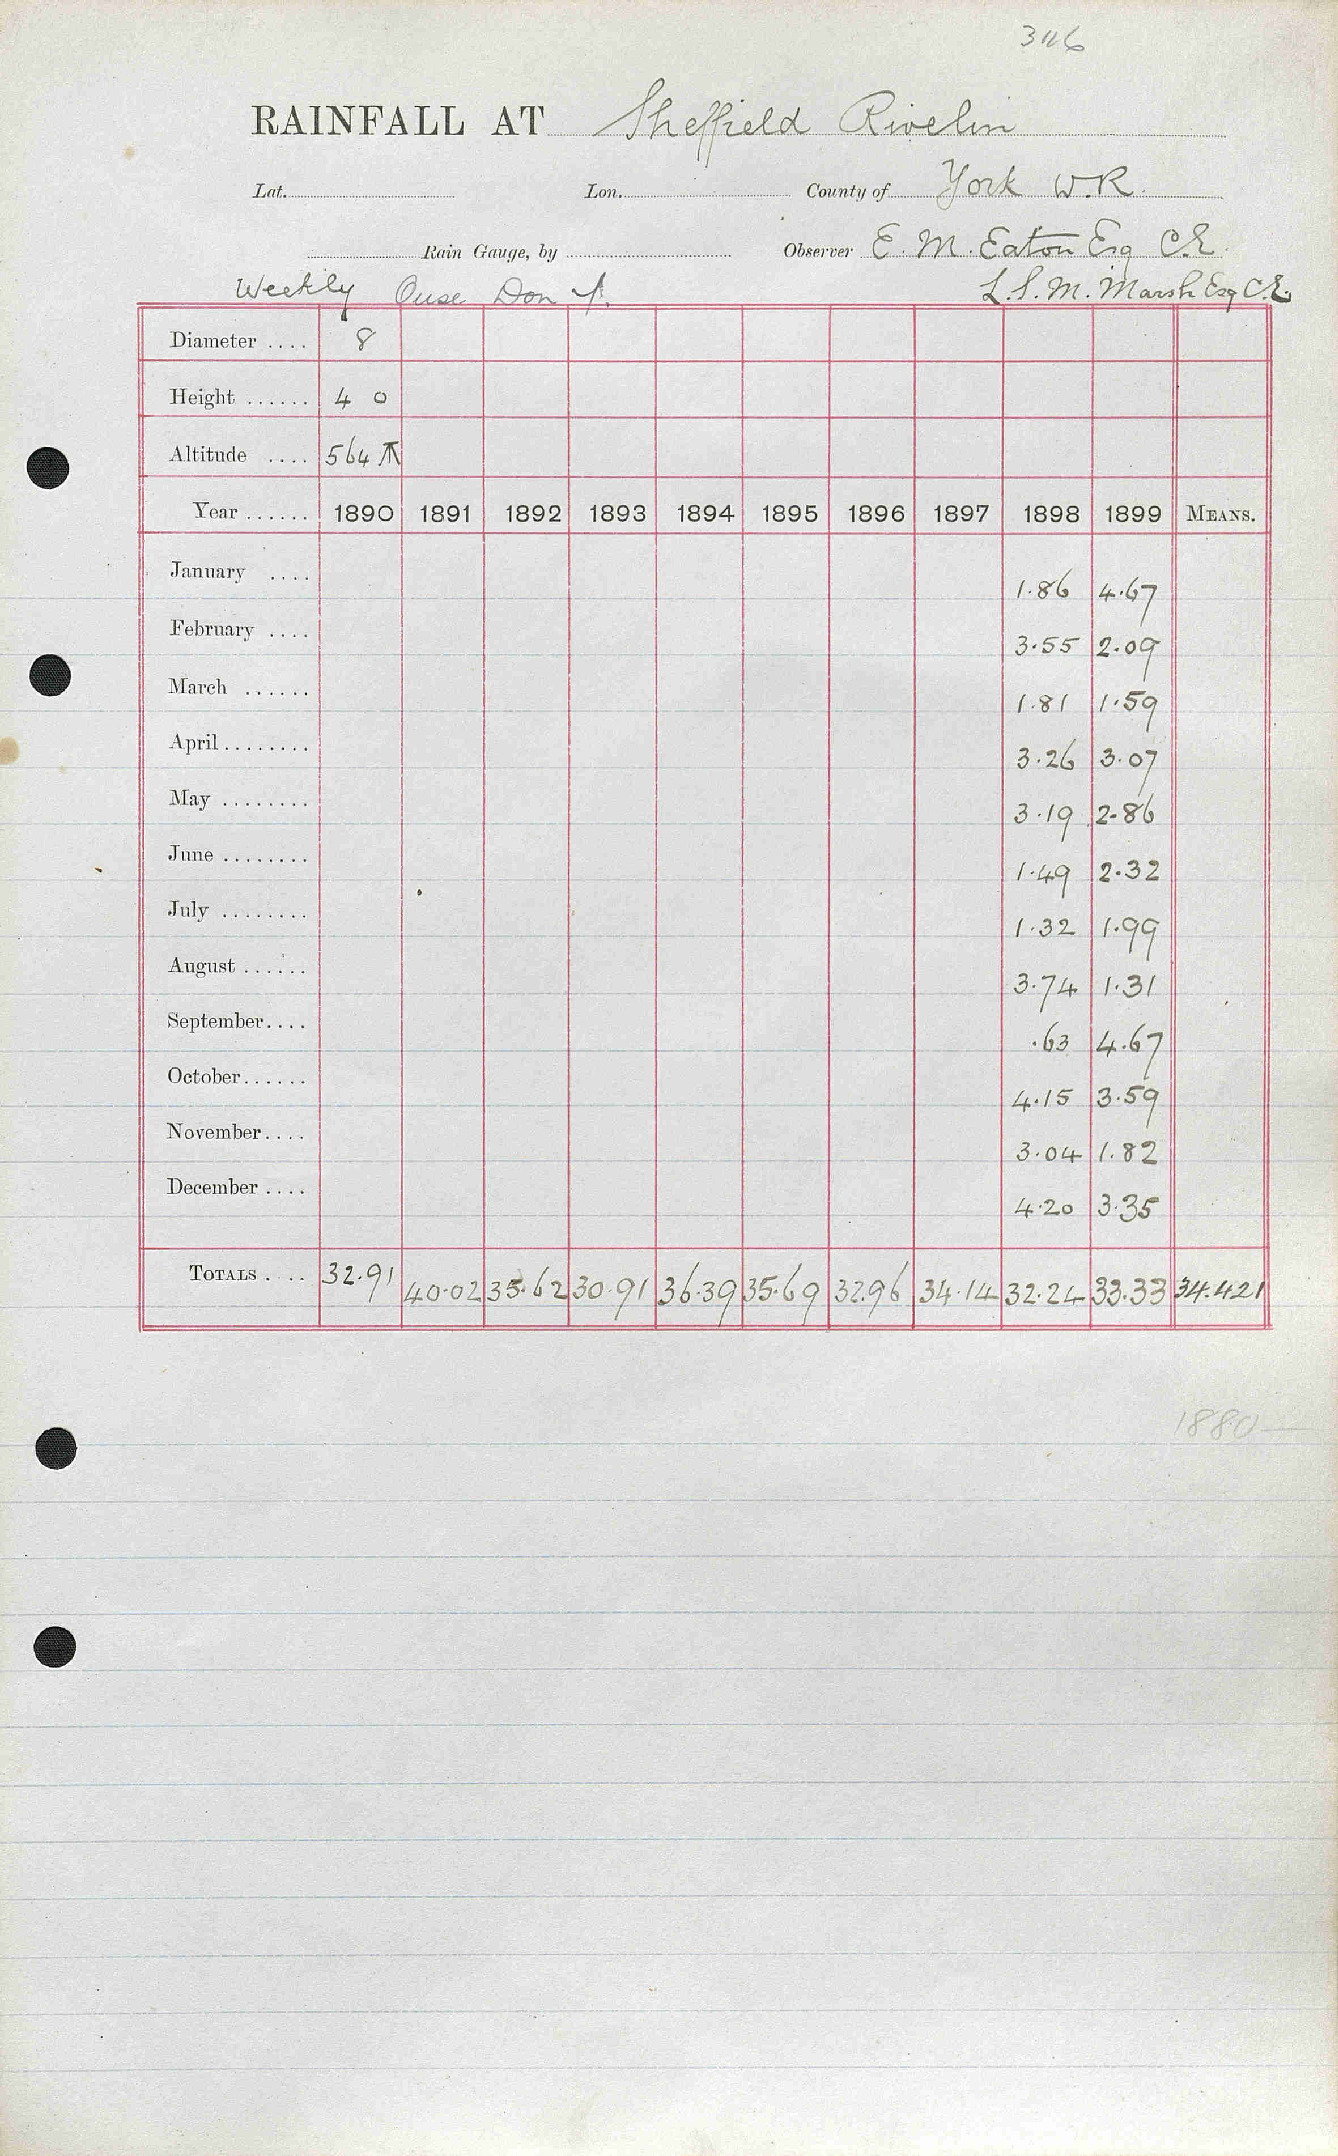 RAINFALL AT Sheffield Rivelin
Lat. Lon. County of York W.R.
Rain Gauge, by Observer E. M. Eaton Esq C.E.
Weekly Ouse Don L.S.M. Marsh Esq C.E.
Diameter .... 8
Height ...... 4 0
Altitude .... 564
Year ...... 1890 1891 1892 1893 1894 1895 1896 1897 1898 1899 MEANS.
January .... 1.86 4.67
February .... 3.55 2.09
March ...... 1.81 1.59
April ........ 3.26 3.07
May ........ 3.19 2.86
June ........ 1.49 2.32
July ........ 1.32 1.99
August ...... 3.74 1.31
September.... .63 4.67
October...... 4.15 3.59
November.... 3.04 1.82
December .... 4.20 3.35
TOTALS .... 32.91 40.02 35.62 30.91 36.39 35.69 32.96 34.14 32.24 33.33 34.421
1880—